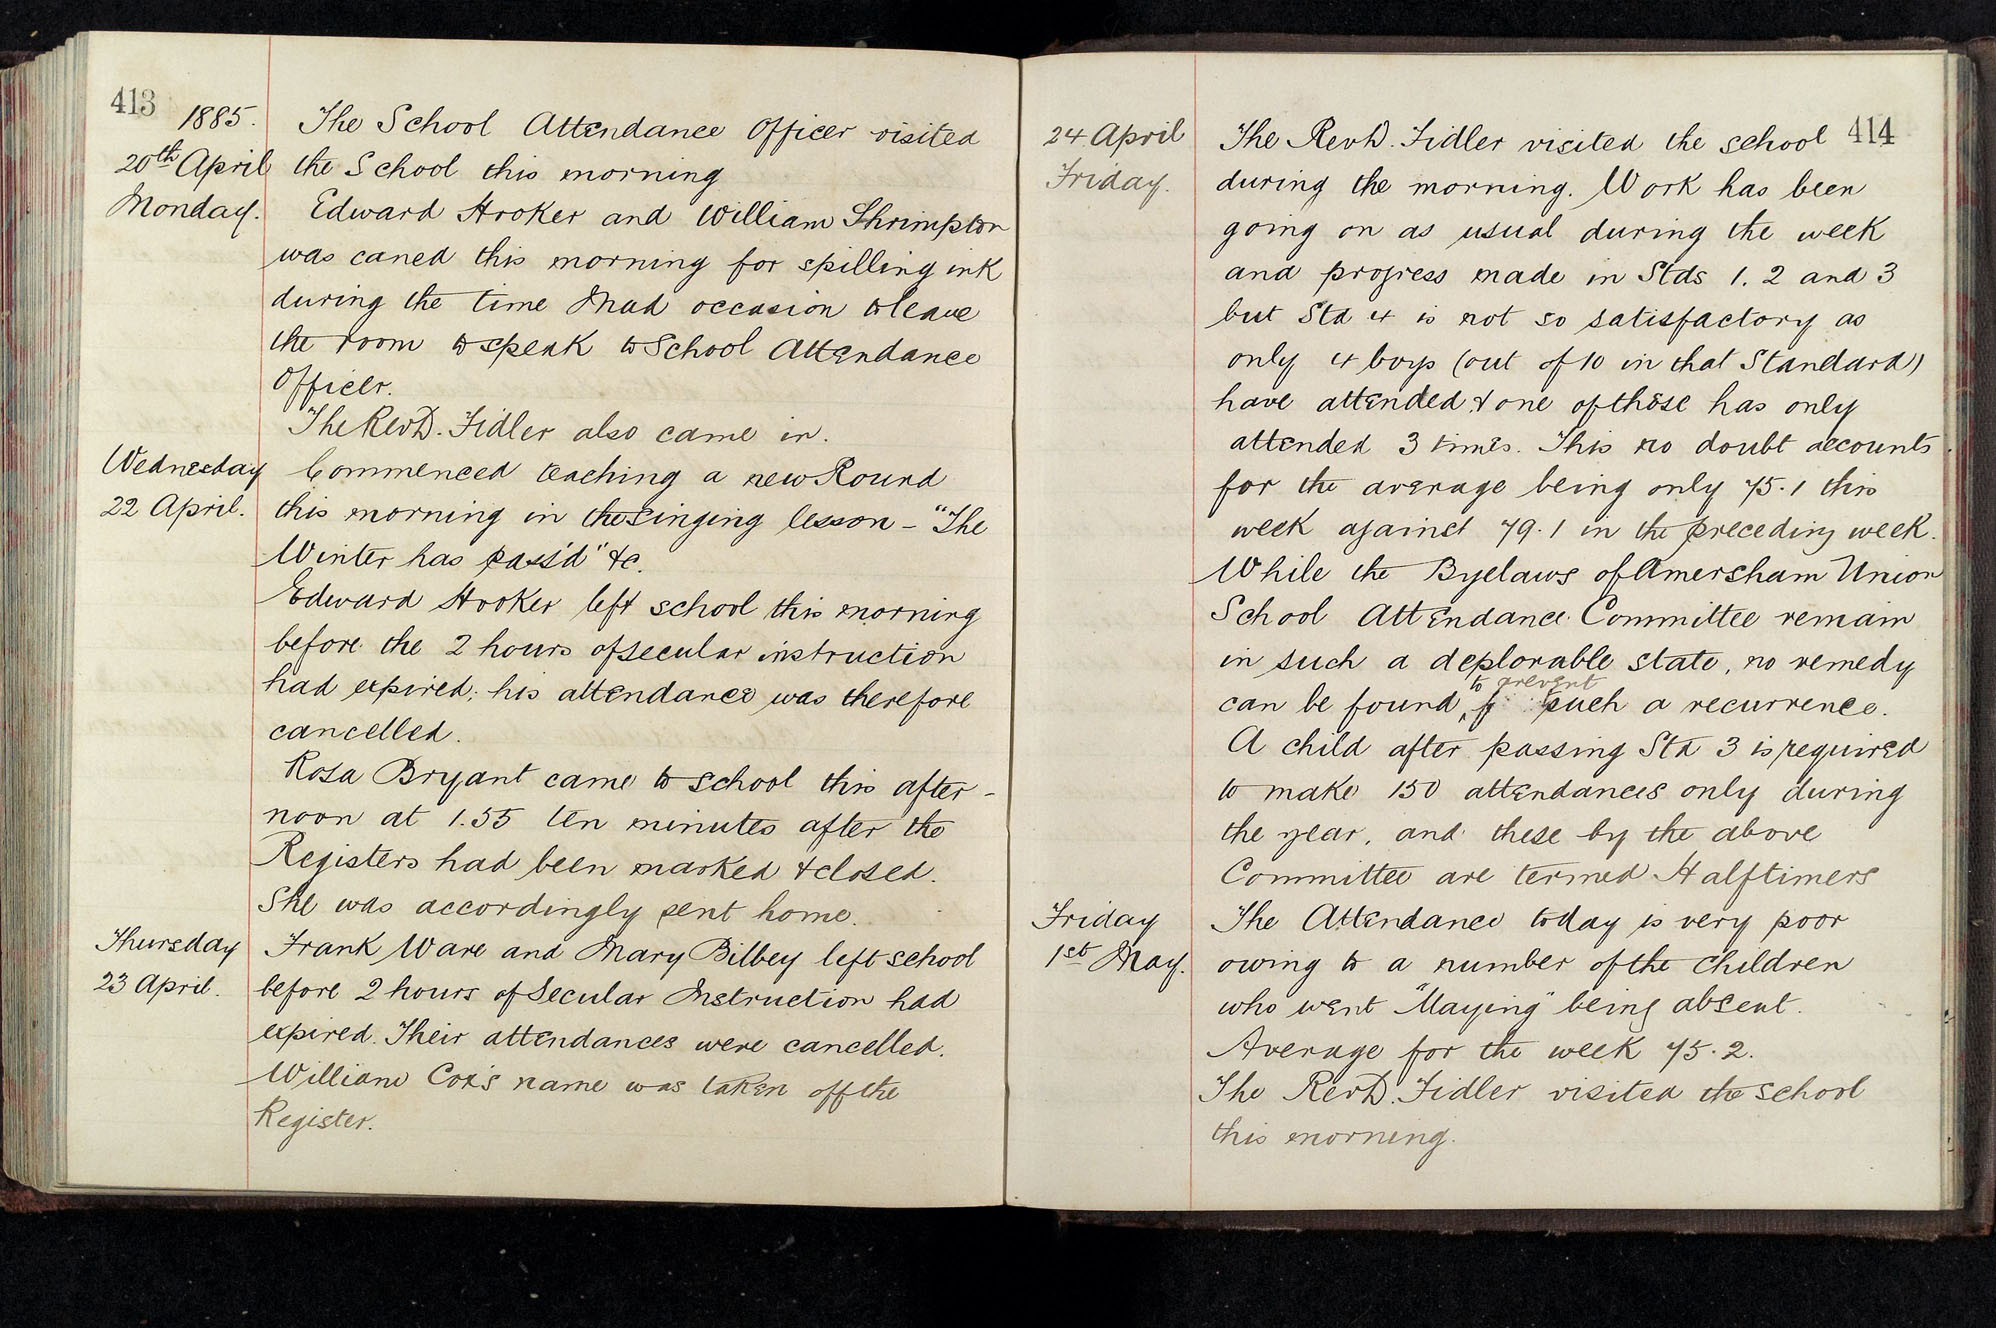 413
1885.
20th April
Monday.
The School Attendance Officer visited
the School this morning
Edward Hooker and William Shrimpton
was caned this morning for spilling ink
during the time I had occasion to leave
the room to speak to School Attendance
Officer.
The Revd. Fidler also came in.
Wednesday
22 April.
Commenced teaching a new Round
this morning in the singing lesson - "The
Winter has pass'd" &c.
Edward Hooker left school this morning
before the 2 hours of secular instruction
had expired; his attendance was therefore
cancelled.
Rosa Bryant came to school this after-
noon at 1.55 ten minutes after the
Registers had been marked & closed.
She was accordingly sent home.
Thursday
23 April.
Frank Ware and Mary Bilbey left school
before 2 hours of Secular Instruction had
expired. Their attendances were cancelled.
William Cox's name was taken off the
Register.
414
24 April
Friday.
The Revd. Fidler visited the school
during the morning. Work has been
going on as usual during the week
and progress made in Stds 1. 2 and 3
but Std 4 is not so satisfactory as
only 4 boys (out of 10 in that Standard)
have attended & one of these has only
attended 3 times. This no doubt accounts
for the average being only 75.1 this
week against 79.1 in the preceding week.
While the Byelaws of Amersham Union
School Attendance Committee remain
in such a deplorable state, no remedy
can be found, to prevent such a recurrence.
A child after passing Std 3 is required
to make 150 attendances only during
the year, and these by the above
Committee are termed Halftimers
Friday
1st May.
The Attendance today is very poor
owing to a number of the children
who went "Maying" being absent.
Average for the week 75.2.
The Revd. Fidler visited the school
this morning.